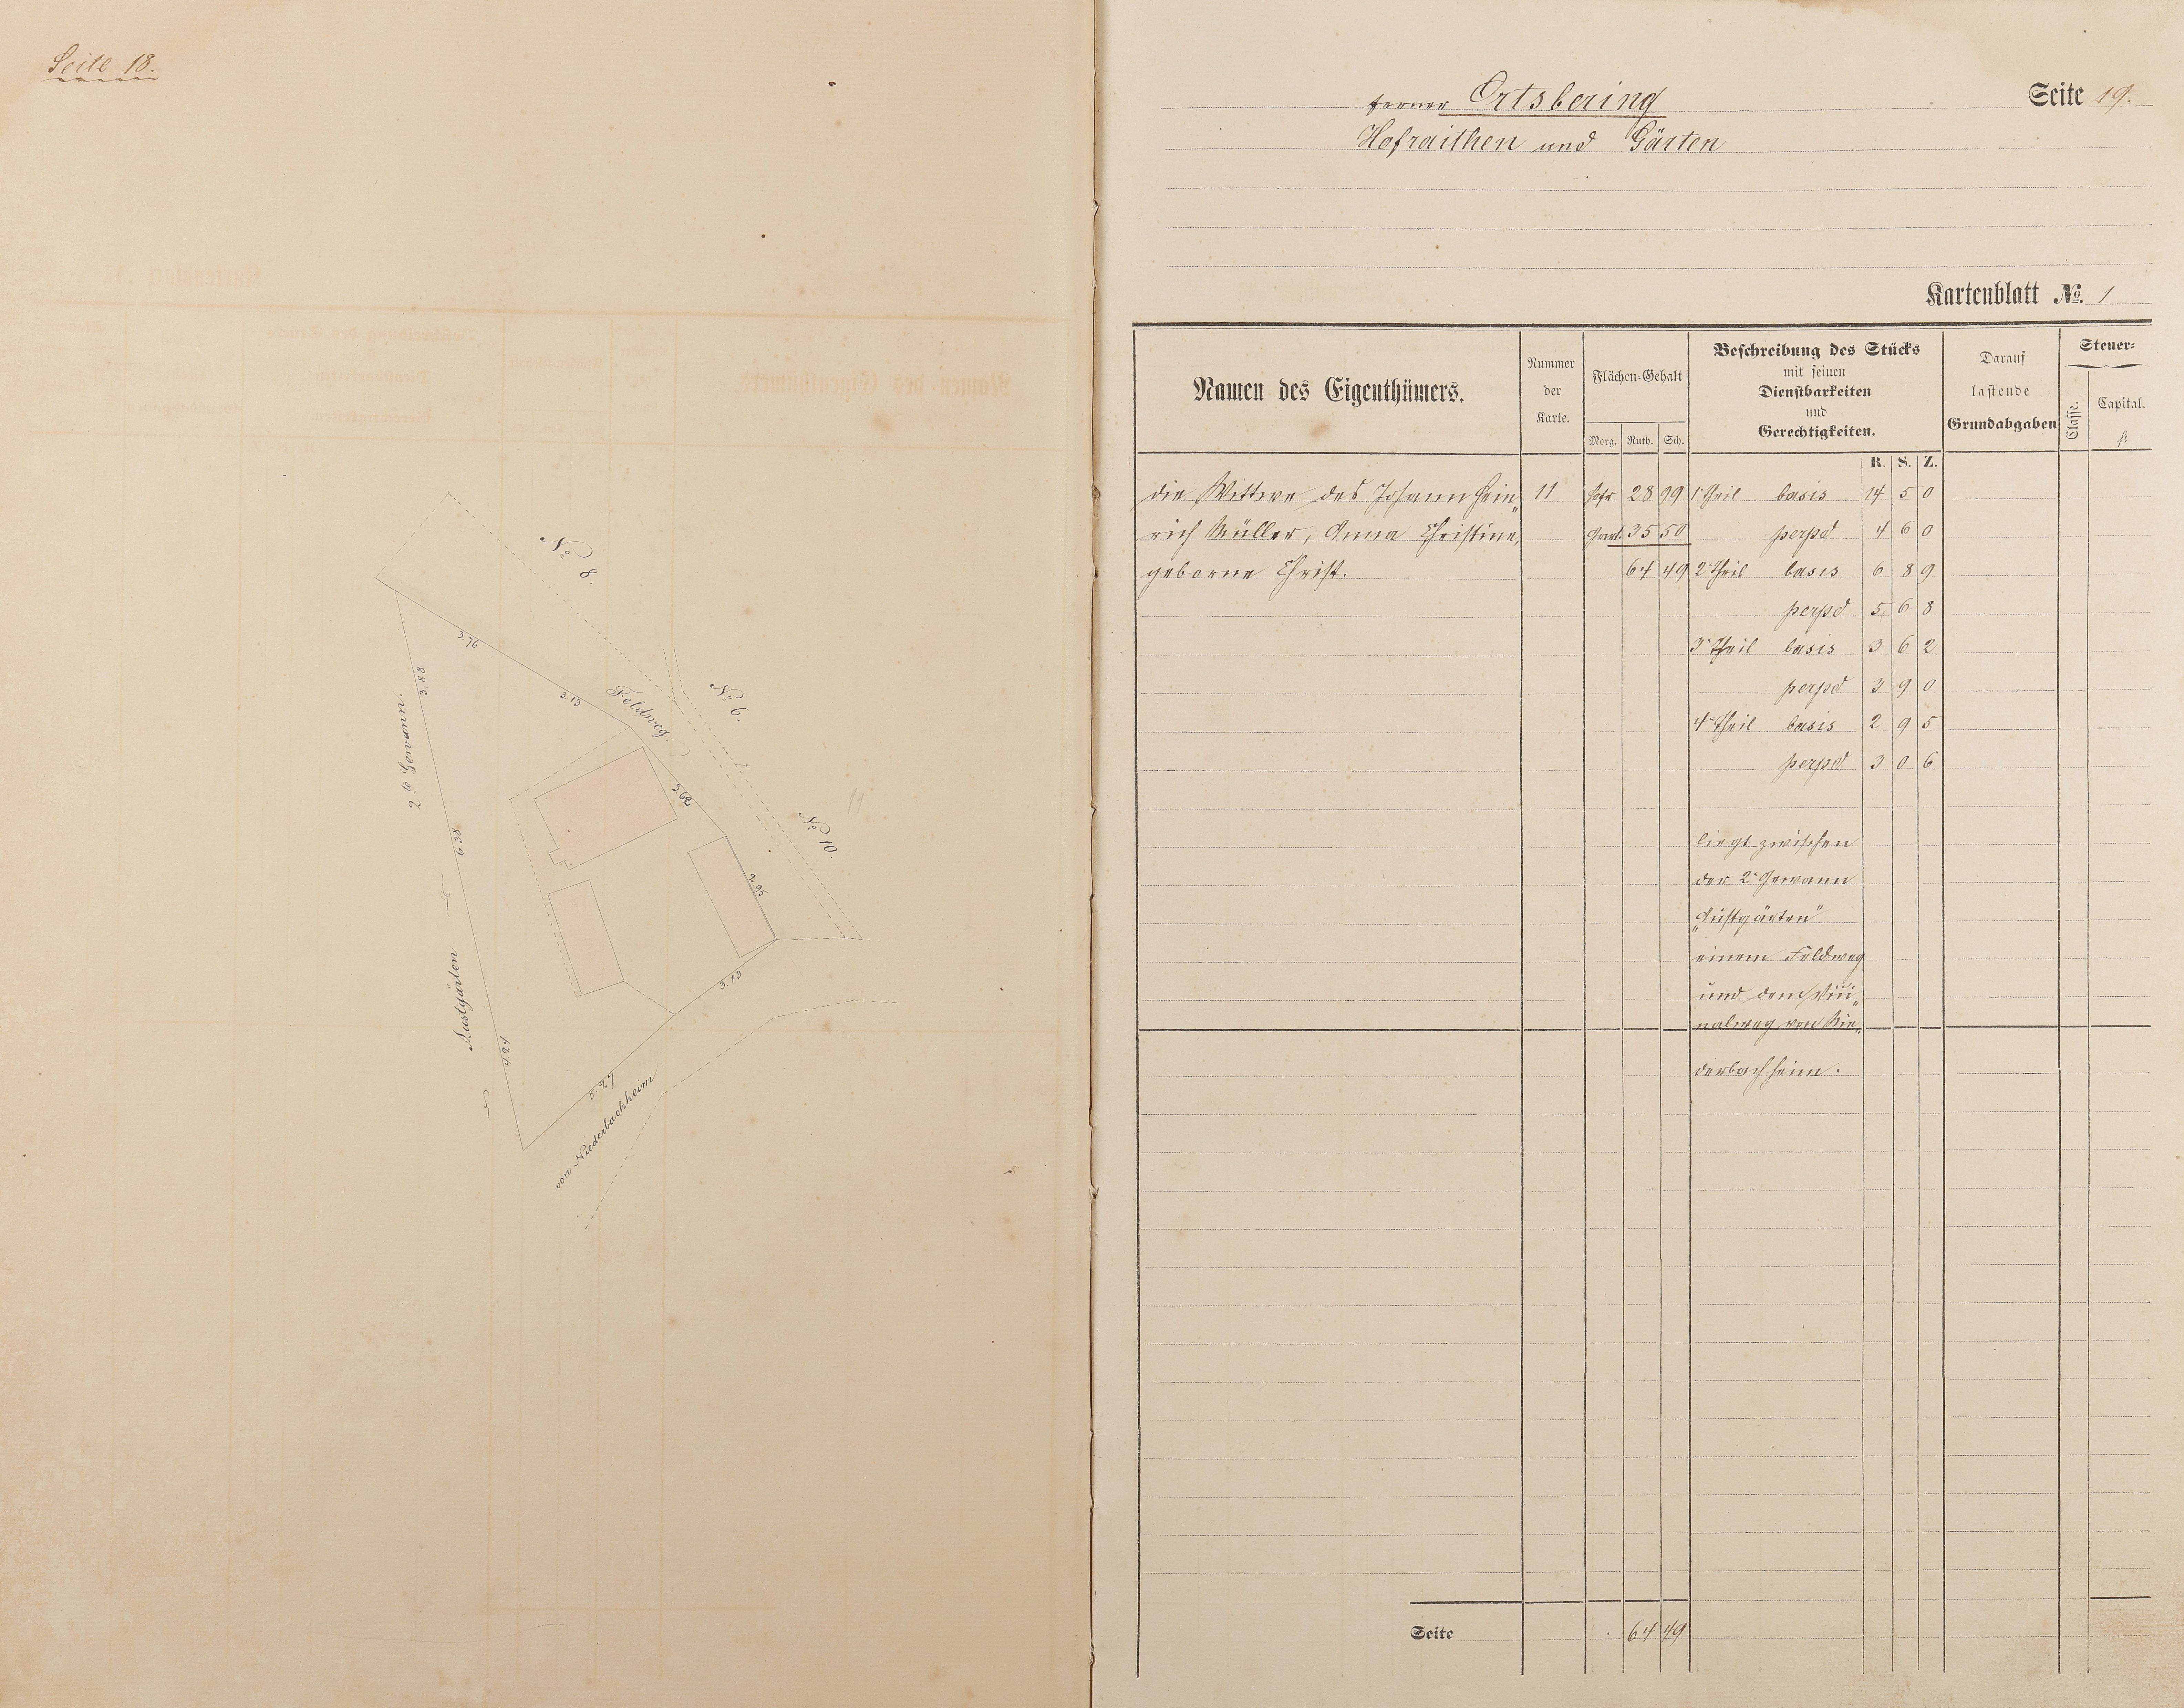 Seite 18.
No 8.
3.76
3.13
Feldweg
No 6.
3.88
2te Gewann.
3.62
No 10.
11
6.38
2.95
Lustgärten
3.13
4.24
5.27
von Niederbachheim
ferner Ortsbering
Seite 19.
Hofraithen und Gärten
Kartenblatt No. 1
Namen des Eigenthümers.
Nummer der Karte.
Flächen-Gehalt
Morg. Ruth. Sch.
Beschreibung des Stücks
mit seinen
Dienstbarkeiten
und
Gerechtigkeiten.
Darauf
lastende
Grundabgaben
Steuer-
Classe.
Capital.
fl.
R. S. Z.
die Wittwe des Johann Hein„ 11 Hofr. 28 99 1r Theil basis 14 5 0
rich Müller, Anna Christine, Gart. 35 50 perpd 4 6 0
geborne Christ. 64 49 2r Theil basis 6 8 9
perpd 5 6 8
3r Theil basis 3 6 2
perpd 3 9 0
4r Theil basis 2 9 5
perpd 3 0 6
liegt zwischen
der 2n Gewann
„Lustgärten"
einem Feldweg
und dem Vici„
nalweg von Nie„
derbachheim.
Seite 64 49